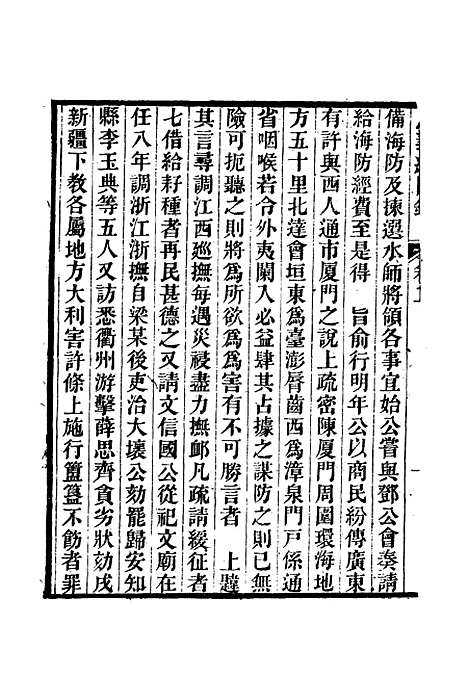 備海防及揀選水師將領各事宜始公嘗與鄧公會奏請
給海防經費至是得　旨俞行明年公以商民紛傳廣東
有許與西人通市厦門之說上疏密陳厦門周圍環海地
方五十里北達會垣東爲臺澎脣齒西爲漳泉門戸係通
省咽喉若令外夷闌入必益肆其占據之謀防之則已無
險可扼聽之則將爲所欲爲爲害有不可勝言者　上韙
其言尋調江西巡撫每遇災祲盡力撫卹凡疏請緩征者
七借給耔種者再民甚德之又請文信國公從祀文廟在
任八年調浙江浙撫自梁某後吏治大壞公劾罷歸安知
縣李玉典等五人又訪悉衢州游擊薛思齊貪劣狀劾戍
新疆下教各屬地方大利害許條上施行簠簋不飭者罪